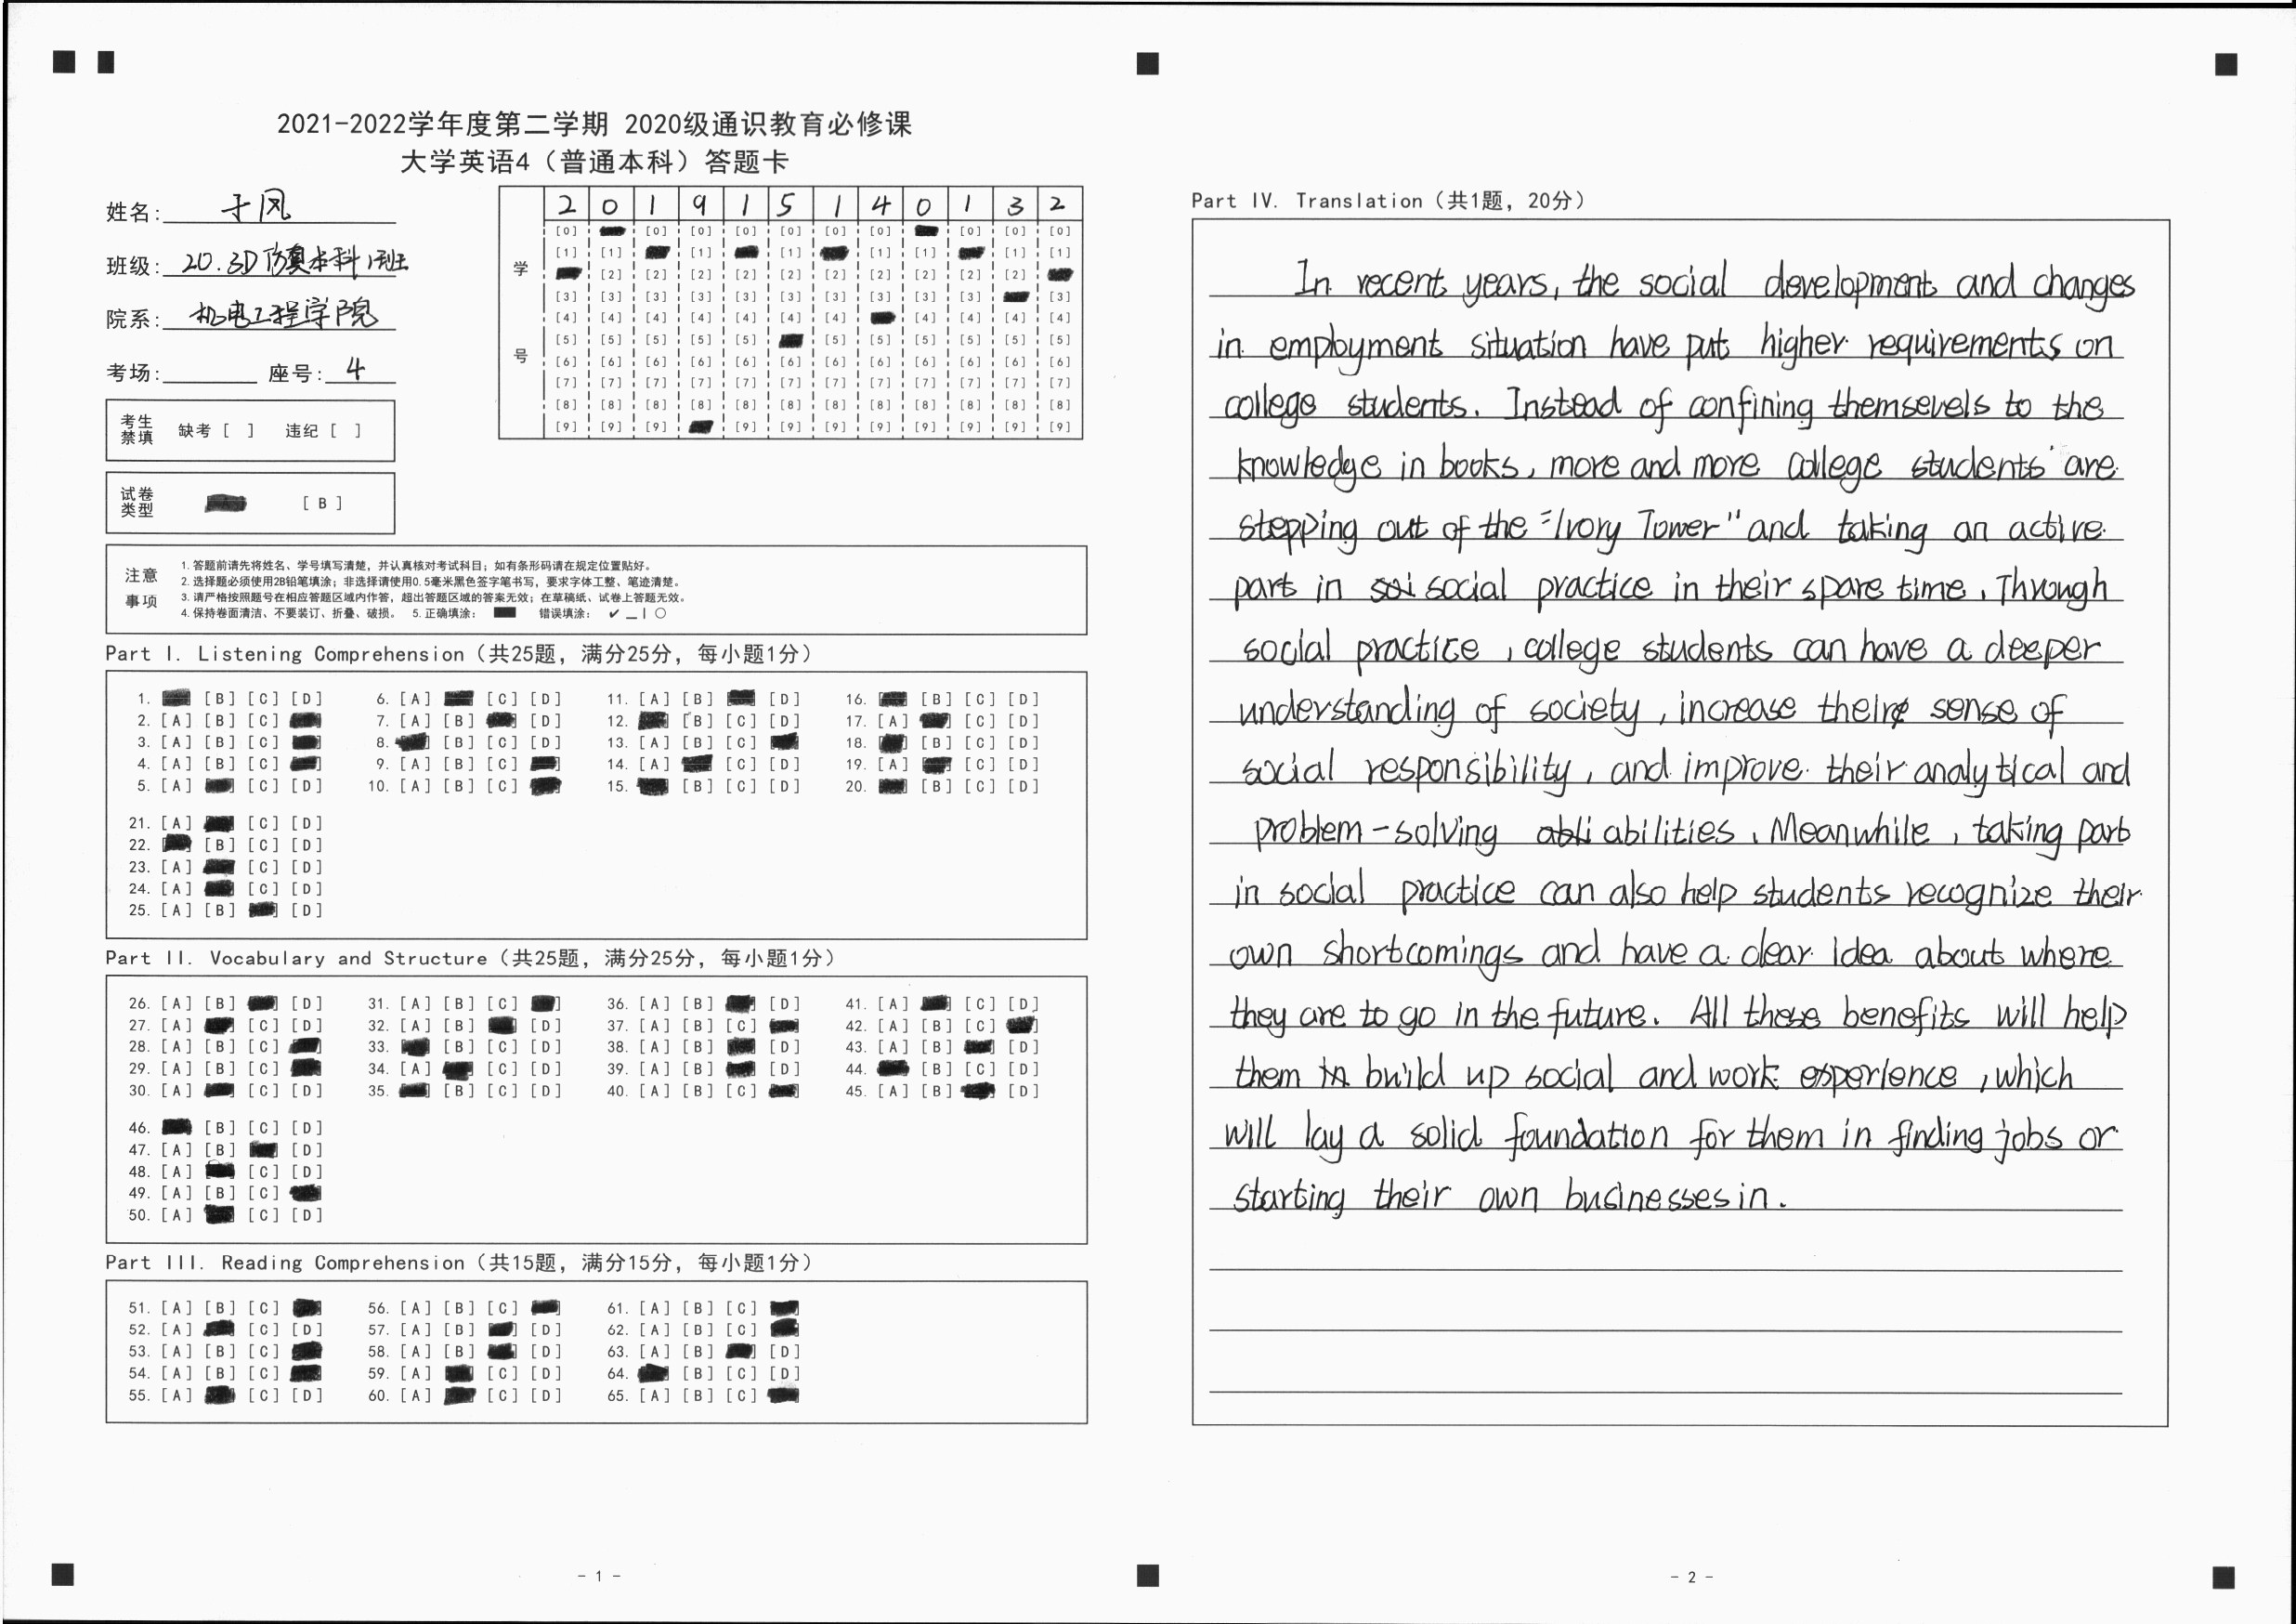 2021-2022学年度第二学期 2020级通识教育必修课
大学英语4（普通本科）答题卡
姓名: 于风
班级: 20.3D仿真本科1班
院系: 机电工程学院
考场: 座号: 4
考生禁填 缺考 [ ] 违纪 [ ]
试卷类型 [ B ]
学号
2 0 1 9 1 5 1 4 0 1 3 2
[0] [0] [0] [0] [0] [0] [0] [0] [0] [0]
[1] [1] [1] [1] [1] [1] [1] [1]
[2] [2] [2] [2] [2] [2] [2] [2] [2] [2]
[3] [3] [3] [3] [3] [3] [3] [3] [3] [3] [3]
[4] [4] [4] [4] [4] [4] [4] [4] [4] [4] [4]
[5] [5] [5] [5] [5] [5] [5] [5] [5] [5] [5]
[6] [6] [6] [6] [6] [6] [6] [6] [6] [6] [6] [6]
[7] [7] [7] [7] [7] [7] [7] [7] [7] [7] [7] [7]
[8] [8] [8] [8] [8] [8] [8] [8] [8] [8] [8] [8]
[9] [9] [9] [9] [9] [9] [9] [9] [9] [9] [9]
注意事项
1.答题前请先将姓名、学号填写清楚，并认真核对考试科目；如有条形码请在规定位置贴好。
2.选择题必须使用2B铅笔填涂；非选择请使用0.5毫米黑色签字笔书写，要求字体工整、笔迹清楚。
3.请严格按照题号在相应答题区域内作答，超出答题区域的答案无效；在草稿纸、试卷上答题无效。
4.保持卷面清洁、不要装订、折叠、破损。 5.正确填涂： 错误填涂：
Part I. Listening Comprehension（共25题，满分25分，每小题1分）
1. [B] [C] [D] 6. [A] [C] [D] 11. [A] [B] [D] 16. [B] [C] [D]
2. [A] [B] [C] 7. [A] [B] [D] 12. [B] [C] [D] 17. [A] [C] [D]
3. [A] [B] [C] 8. [B] [C] [D] 13. [A] [B] [C] 18. [B] [C] [D]
4. [A] [B] [C] 9. [A] [B] [C] 14. [A] [C] [D] 19. [A] [C] [D]
5. [A] [C] [D] 10. [A] [B] [C] 15. [B] [C] [D] 20. [B] [C] [D]
21. [A] [C] [D]
22. [B] [C] [D]
23. [A] [C] [D]
24. [A] [C] [D]
25. [A] [B] [D]
Part II. Vocabulary and Structure（共25题，满分25分，每小题1分）
26. [A] [B] [D] 31. [A] [B] [C] 36. [A] [B] [D] 41. [A] [C] [D]
27. [A] [C] [D] 32. [A] [B] [D] 37. [A] [B] [C] 42. [A] [B] [C]
28. [A] [B] [C] 33. [B] [C] [D] 38. [A] [B] [D] 43. [A] [B] [D]
29. [A] [B] [C] 34. [A] [C] [D] 39. [A] [B] [D] 44. [B] [C] [D]
30. [A] [C] [D] 35. [B] [C] [D] 40. [A] [B] [C] 45. [A] [B] [D]
46. [B] [C] [D]
47. [A] [B] [D]
48. [A] [C] [D]
49. [A] [B] [C]
50. [A] [C] [D]
Part III. Reading Comprehension（共15题，满分15分，每小题1分）
51. [A] [B] [C] 56. [A] [B] [C] 61. [A] [B] [C]
52. [A] [C] [D] 57. [A] [B] [D] 62. [A] [B] [C]
53. [A] [B] [C] 58. [A] [B] [D] 63. [A] [B] [D]
54. [A] [B] [C] 59. [A] [C] [D] 64. [B] [C] [D]
55. [A] [C] [D] 60. [A] [C] [D] 65. [A] [B] [C]
- 1 -
Part IV. Translation（共1题，20分）
In recent years, the social development and changes
in employment situation have put higher requirements on
college students. Instead of confining themsevels to the
knowledge in books, more and more college students are
stepping out of the "Ivory Tower" and taking an active
part in social practice in their spare time. Through
social practice, college students can have a deeper
understanding of society, increase their sense of
social responsibility, and improve their analytical and
problem-solving abilities. Meanwhile, taking part
in social practice can also help students recognize their
own shortcomings and have a clear idea about where
they are to go in the future. All these benefits will help
them build up social and work experience, which
will lay a solid foundation for them in finding jobs or
starting their own businesses in.
- 2 -